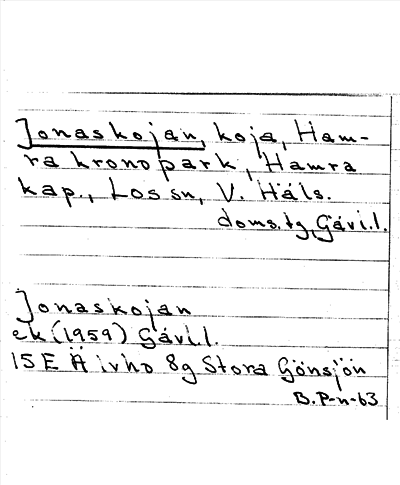 Jonaskojan, koja, Ham-
ra kronopark, Hamra
kap., Los sn, V. Häls.
doms.tg, Gävl.l.
Jonaskojan
ek (1959) Gävl.l.
15 E Ä ivho 8g Stora Gönsjön
B. P-n-63